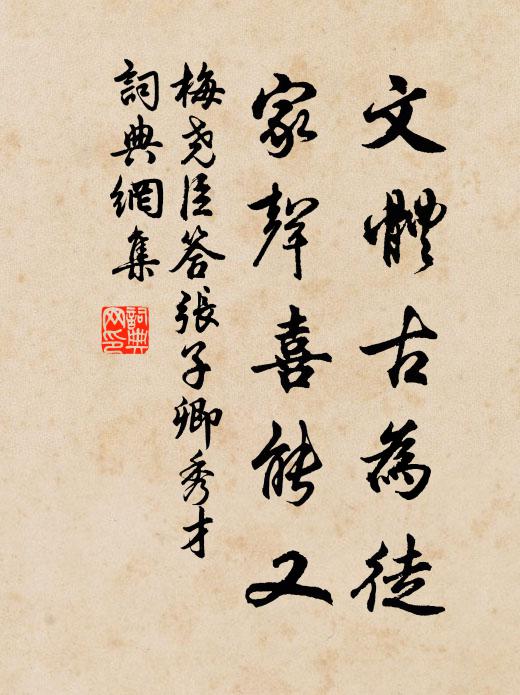 文體古為徒
家聲喜能又
梅堯臣答張子卿秀才
詞典網集
詞典网印